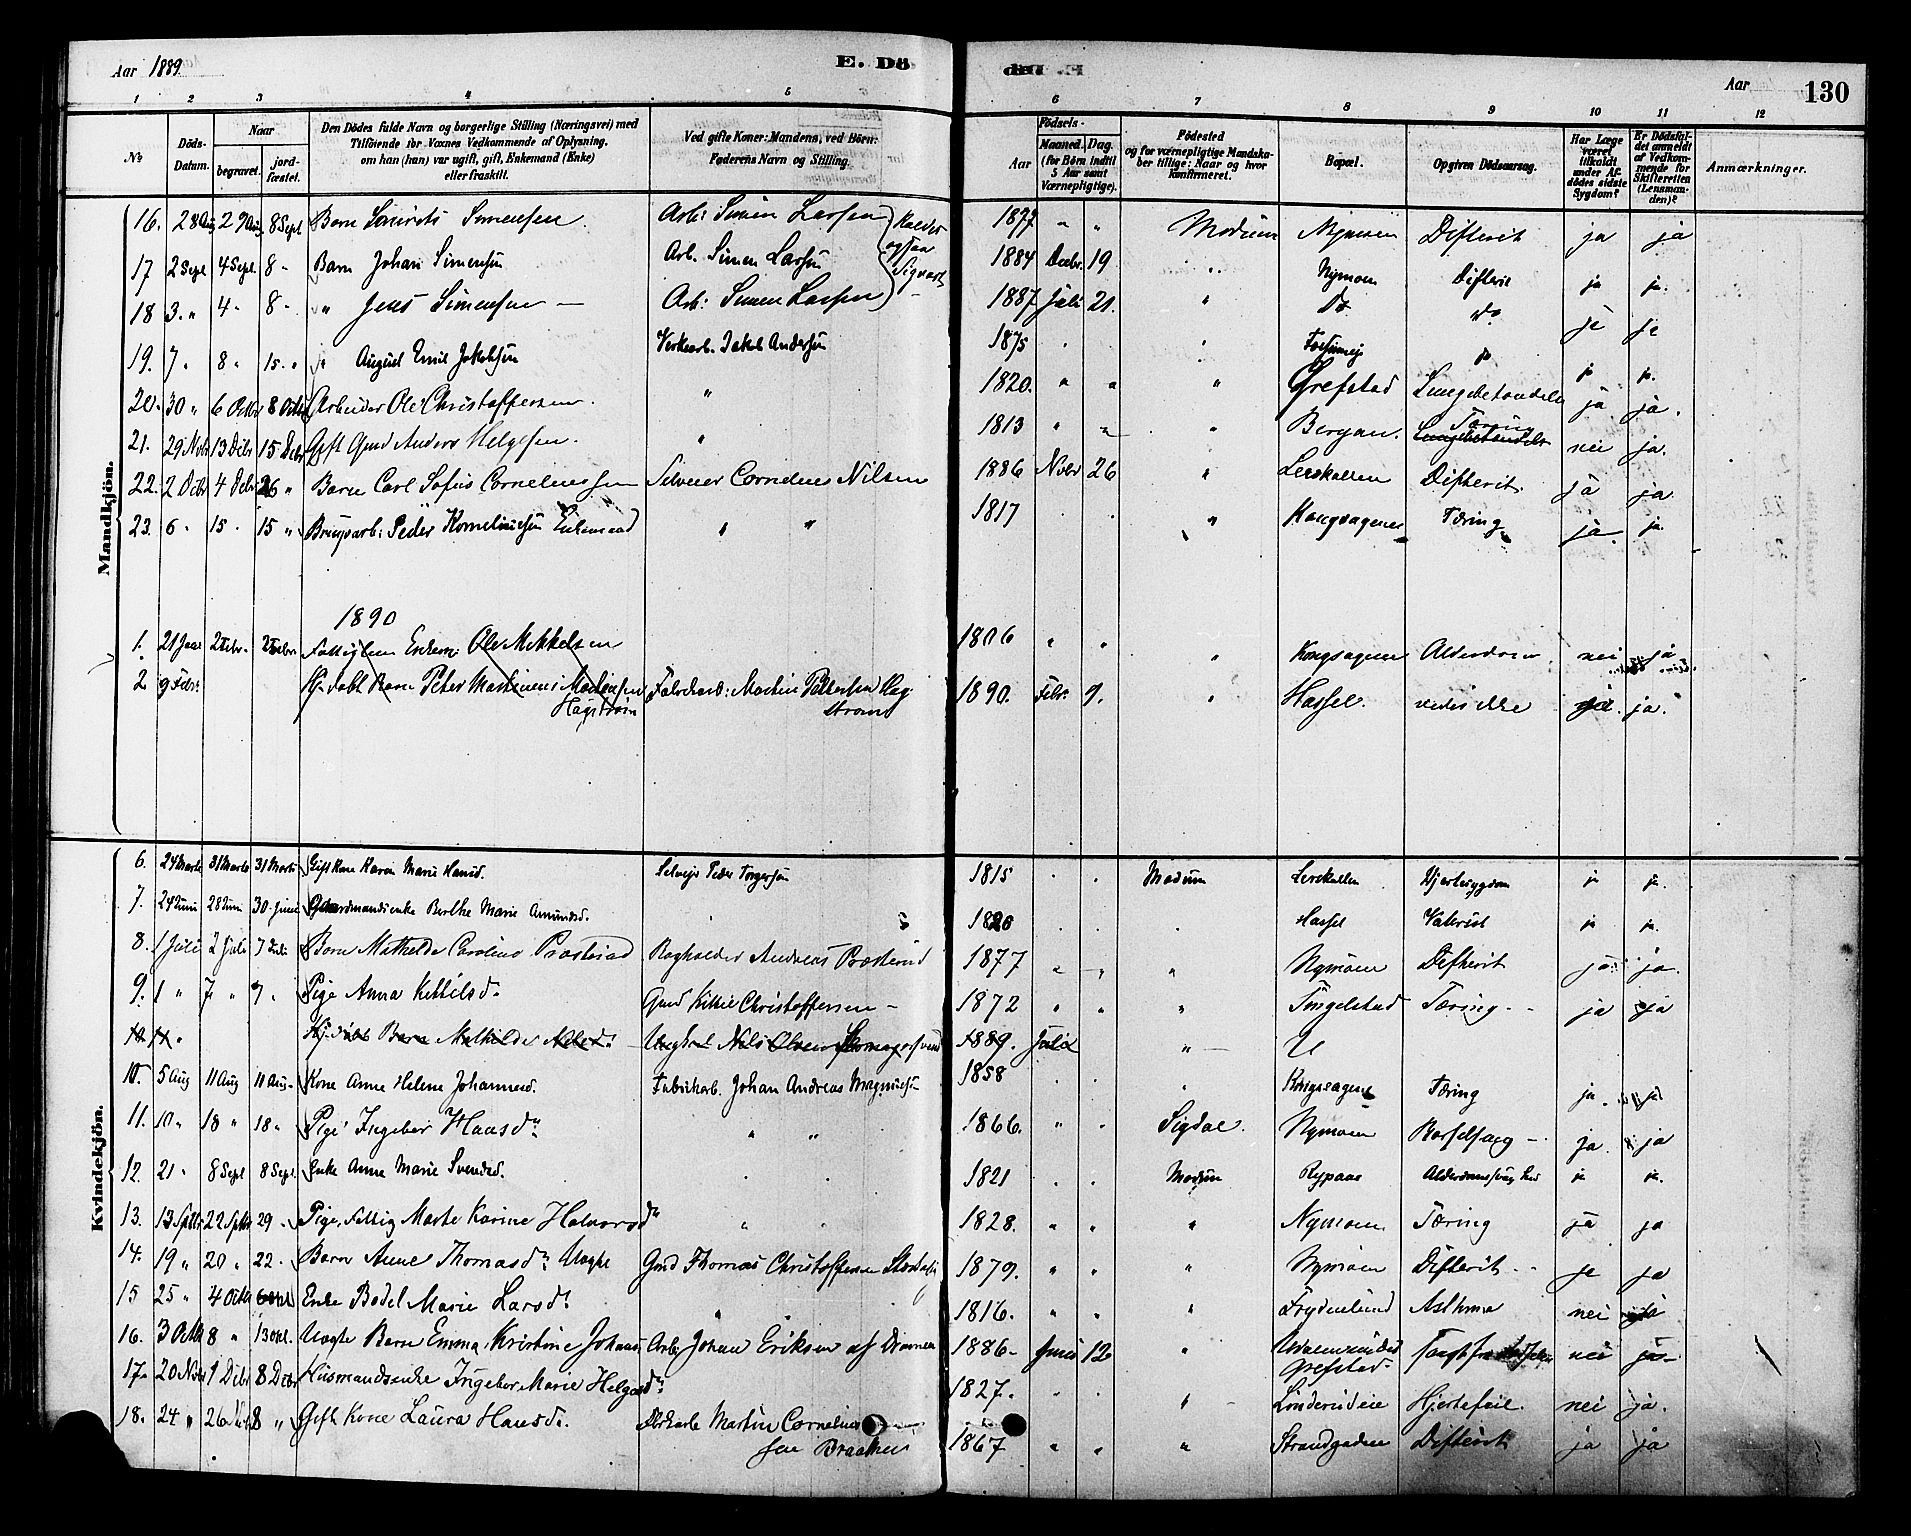 Aar 1889
E. Dö
de.
Aar
130
1 2 3 4 5 6 7 8 9 10 11 12
No
Döds-Datum.
Naar begravet. jordfæstet.
Den Dödes fulde Navn og borgerlige Stilling (Næringsvei) med Tilföiende for Voxnes Vedkommende af Oplysning, om han (hun) var ugift, gift, Enkemand (Enke) eller fraskilt.
Ved gifte Koner: Mandens, ved Börn: Faderens Navn og Stilling.
Födsels- Aar Maaned. Dag. (for Börn indtil 5 Aar samt Værnepligtige).
Födested og for værnepligtige Mandskaber tillige: Naar og hvor konfirmeret.
Bopæl.
Opgiven Dödsaarsag.
Har Læge været tilkaldt under Afdödes sidste Sygdom?
Er Dödsfaldet anmeldt af Vedkommende for Skifteretten (Lensmanden)?
Anmærkninger.
Mandkjön.
16. 28 Aug 29 Aug 8 Sept Barn Simensen Arb: Simen Larsen 1877 " " Modum Nymoen Difterit ja ja
17 2 Sept 4 Sept. 8 - Barn Johan Simensen Arb. Simen Larsen Sigvart 1884 Decbr. 19 " Nymoen Difterit ja ja.
18 3. " 4 - 8 - " Jens Simensen — Arb: Simen Larsen 1887 Juli 21. " Do do ja ja
19. 7 " 8 " 15. " " August Emil Jakobsen Verksarb. Jakob Andersen 1875 . . " do ja ja.
20. 30 " 6 Octbr 8 Octbr Arbeider Ole Christoffersen. " 1820. " " " Grefstad Lungebetændelse ja ja.
21. 29 Novbr 13 Debr 15 Debr Gift Gmd Anders Helgesen. " 1813 " " " Bergan. Lungebetændelse Tæring nei ja.
22. 2 Debr 4 Debr 26 " Barn Carl Sofus Corneliussen Selveier Cornelius Nilsen 1886 Novbr 26 " Lerskallen Difterit. ja ja
23. 6 " 15 . 15 " Brugsarb: Peder Korneliussen Enkemand " " 1817 . . " Kongssagene Tæring ja ja.
1890
1. 21 Jan 2 Febr. 2 Febr. Fattiglem Enkem: Ole Mikkelsen 1806 " " " Kongsagene Alderdom nei ja
2 9 Febr. Hj. døbt Barn Peter Martinius Martinsen Hagstrøm Fabrikarb: Martin Pettersen Hagstrøm 1890. Febr. 7. " Hassel. vides ikke ja.
Kvindekjön.
6. 24 Marts 31 Marts 31 Marts Gift Kone Karen Marie Hansd. Selveier Peder Torgersen 1815 . . Modum Lerskallen Hjertesygdom ja ja.
7. 24 Juni 28 Juni 30. Juni Gaardmandsenke Berthe Marie Amundsd. 1820 . . . Hassel ja ja.
8. 1 Juli 2 Juli 7 Juli Barn Mathilde Caroline Præsterud Bogholder Andreas Præsterud 1877 " " " Nymoen Difterit ja ja.
9. 1 " 7 " 7 " Pige Anna Kittilsd. Gmd Kittil Christoffersen — 1872 " " " Tingelstad Tæring. ja ja
10 11 " Hj. døbt Barn Mathilde Nilsd. Ungkarl Nils Olsen 1889. Juli " —
10. 5 Aug 11 Aug 11 Aug. Kone Anne Helene Johannesd. Fabrikarb. Johan Andreas Magnussen 1858 . . " Kongssagene Tæring ja. ja.
11. 10 " 18 " 18 " Pige Ingebor Hansd. " " 1866. " . Sigdal. Nymoen Barselseng — ja. ja
12. 21 " 8 Sept 8 Sept. Enke Anne Marie Svendsd. " 1821 . . Modum Rypaas ja ja.
13. 13 Septbr 22 Septbr 29 - Pige, Fattig Marte Karine Halvorsd. " " 1828. " " " Nymoen Tæring ja ja
14. 19 " 20 " 22 - Barn Anne Thomasd. Uægte Gmd Thomas Christoffersen 1879. " " " Nymoen Difterit ja ja
15 25 " 4 Octbr Enke Bodel Marie Larsd. " 1816. " " " Frydenlund Asthma nei ja
16. 3 Octbr 8 " 13 Oct. Uægte Barn Emma Kristine Johans. Arb. Johan Eriksen af Drammen 1886- Juni 12 " Grefstad. nei ja
17. 20 Novbr 1 Debr 8 Debr Husmandsenke Ingebor Marie Helgesd. 1827. . . " — Linderudeie Hjertefeil. nei ja.
18. 24 " 26 8 " Gift Kone Laura Hansd. Martin Corneliussen Braaten 1867 " " " Strandgaden Difterit ja ja